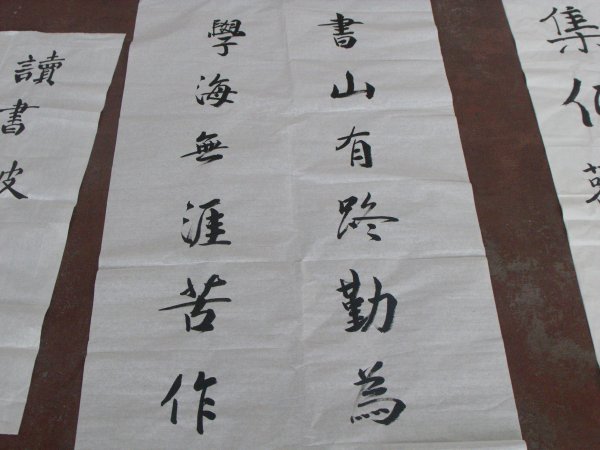 集
書山有路勤為
學海無涯苦作
讀書破